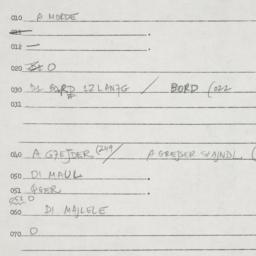 010 A MORDE
011 .
012 — .
020 O
030 DI BORD 12 LANZG / BORD (022
031
040 A GREJDER (249 / A GREJSER SVAJNDL (
050 DI MAUL .
051 QGER .
051 O
060 DI MAJLELE
070 O